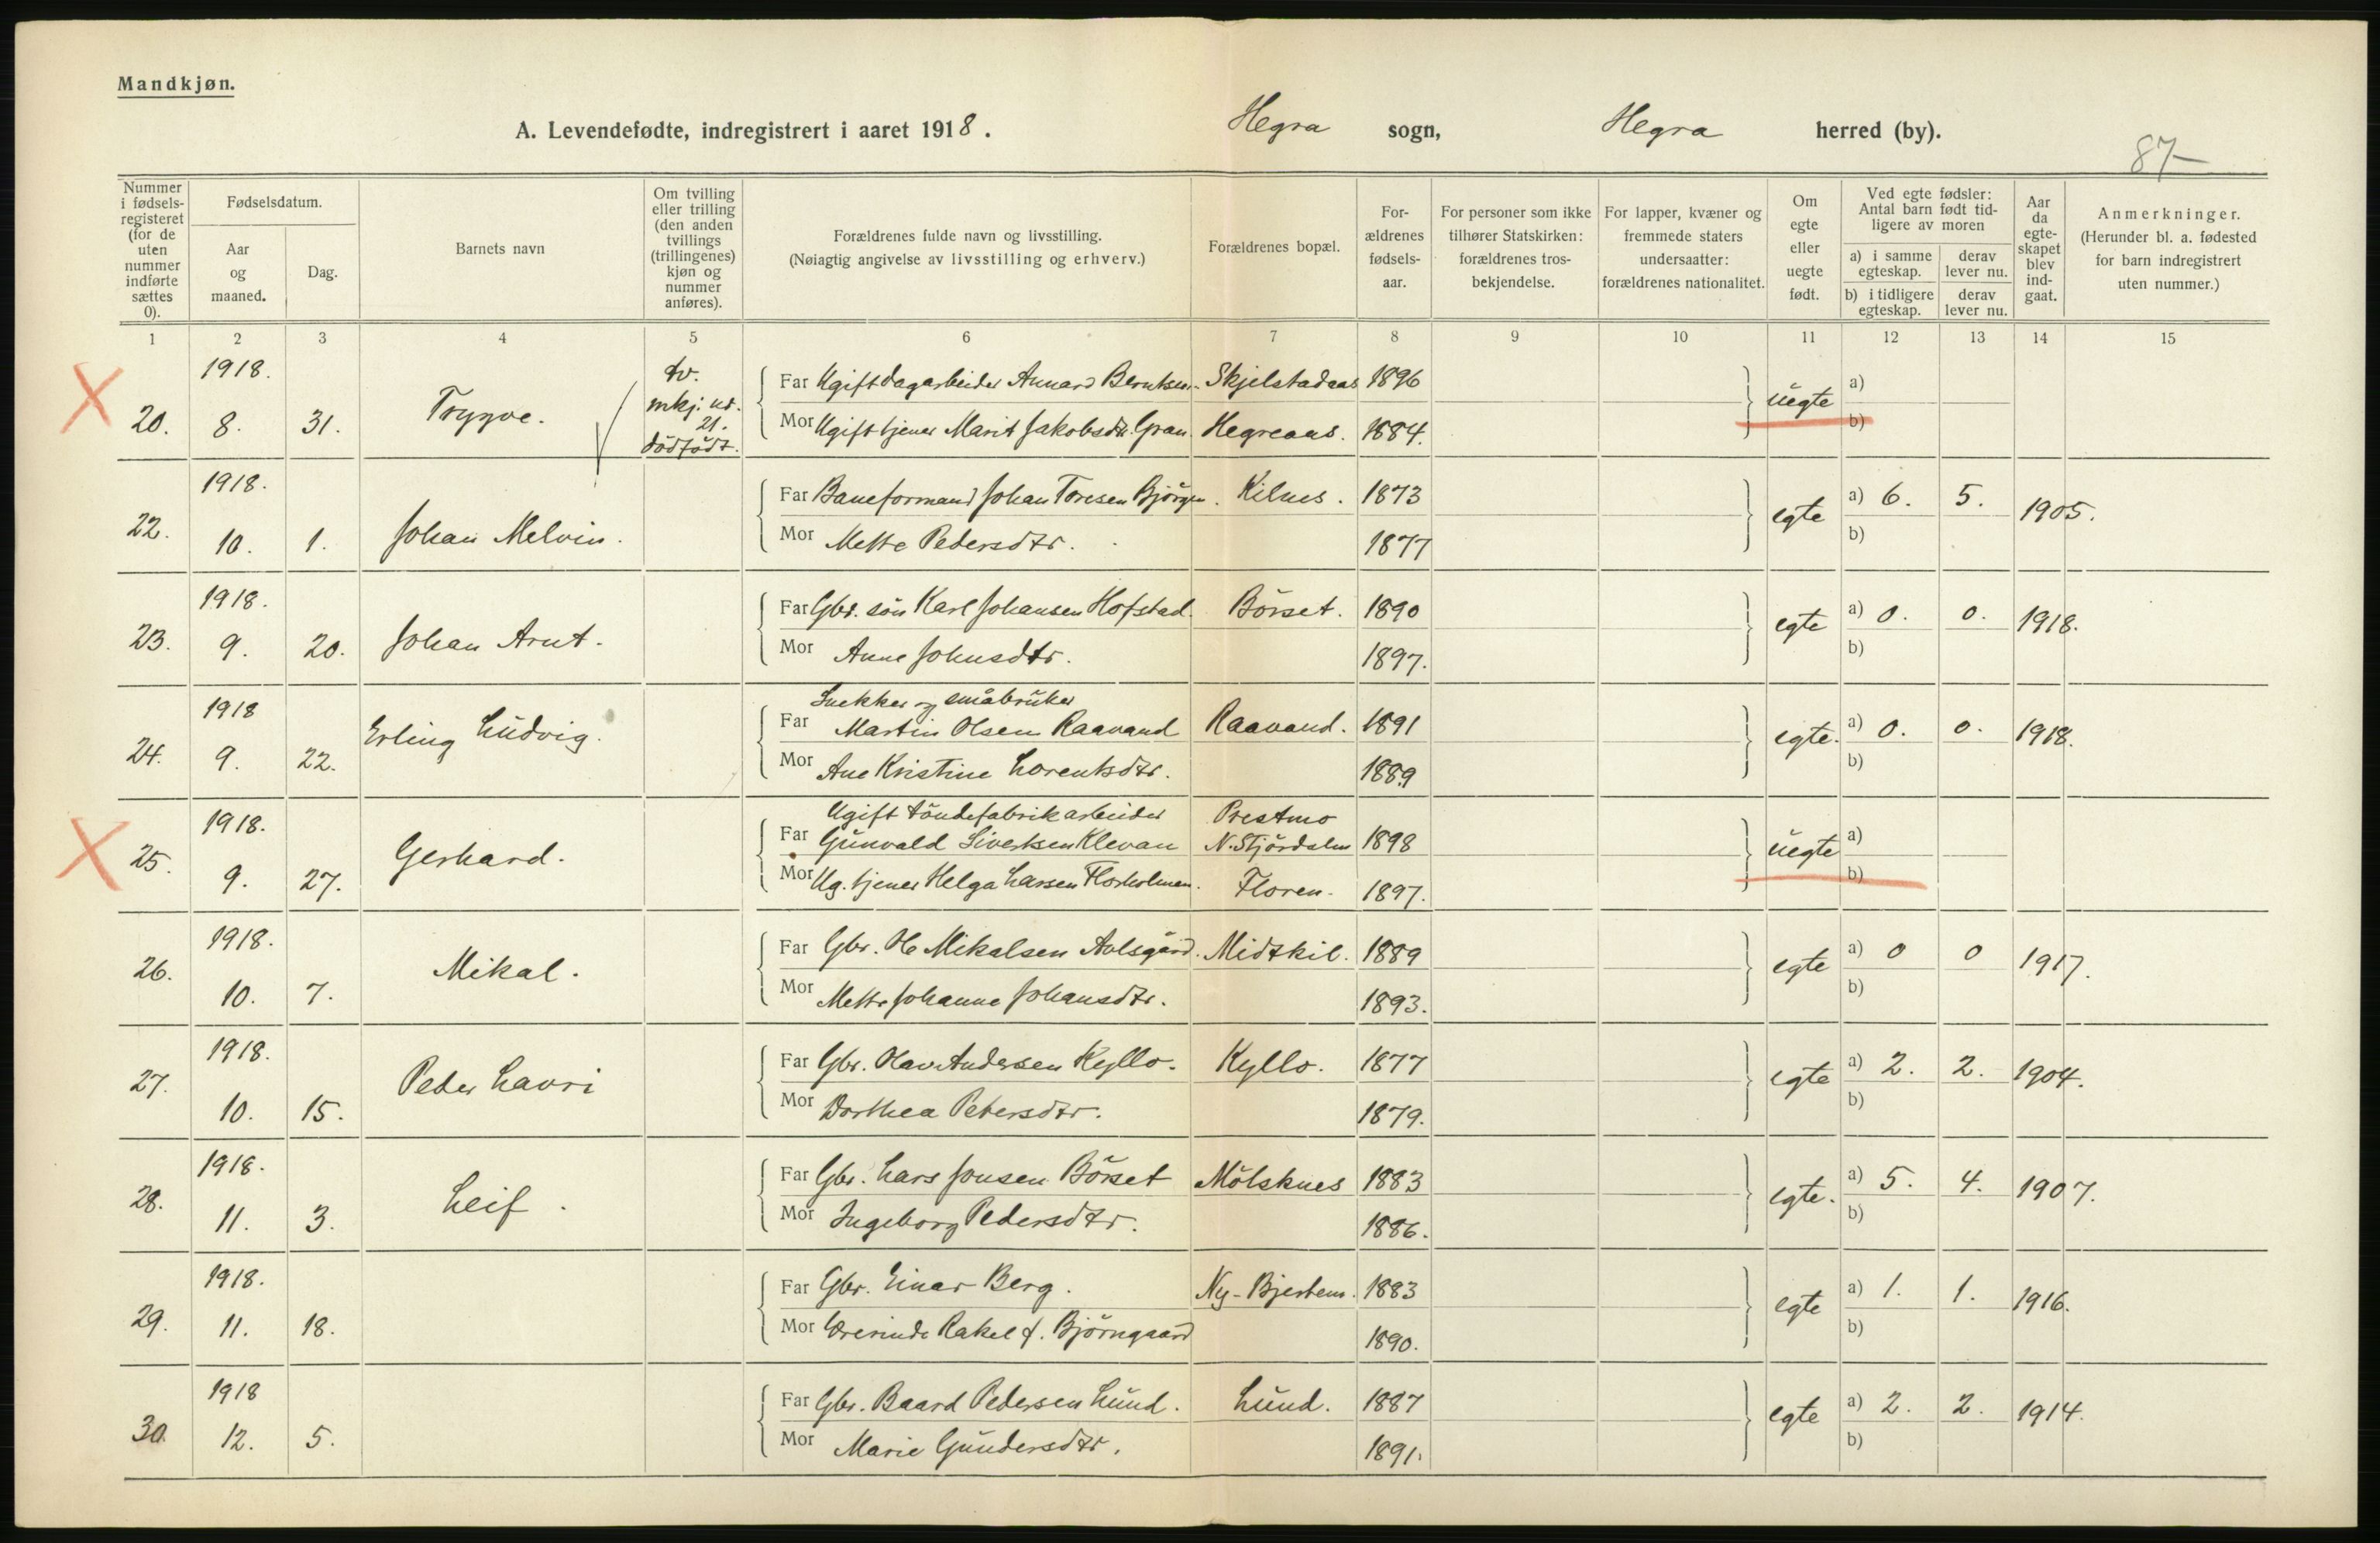 Mandkjøn.
A. Levendefødte, indregistrert i aaret 1918. Hegra sogn, Hegra herred (by).
87-
Nummer i fødsels-registeret (for de uten nummer indførte sættes 0).
Fødselsdatum.
Aar og maaned.
Dag.
Barnets navn
Om tvilling eller trilling (den anden tvillings (trillingenes) kjøn og nummer anføres).
Forældrenes fulde navn og livsstilling.
(Nøiagtig angivelse av livsstilling og erhverv.)
Forældrenes bopæl.
For-ældrenes fødsels-aar.
For personer som ikke tilhører Statskirken: forældrenes tros-bekjendelse.
For lapper, kvæner og fremmede staters undersaatter: forældrenes nationalitet.
Om egte eller uegte født.
Ved egte fødsler: Antal barn født tid-ligere av moren
a) i samme egteskap. derav lever nu.
b) i tidligere egteskap. derav lever nu.
Aar da egte-skapet blev ind-gaat.
Anmerkninger.
(Herunder bl. a. fødested for barn indregistrert uten nummer.)
1 2 3 4 5 6 7 8 9 10 11 12 13 14 15
X 20. 1918. 8. 31. Trygve. tv. mkj. nr. 21. dödfödt.
Far Ugift dagarbeider Annard Berntsen Skjelstadaas 1896 uegte a)
Mor Ugift tjener Marit Jakobsdtr. Gran Hegreaas. 1884. b)
22. 1918. 10. 1. Johan Melvin.
Far Baneformand Johan Toresen Bjørgen. Kilnes. 1873 egte a) 6. 5. 1905.
Mor Mette Pedersdtr. 1877 b)
23. 1918. 9. 20. Johan Arnt.
Far Gbr. sön Karl Johansen Hofstad. Börset. 1890 egte a) 0. 0. 1918.
Mor Anne Johnsdtr. 1897. b)
24. 1918 9. 22. Erling Ludvig.
Snekker og småbruker
Far Martin Olsen Raavand Raavand. 1891 egte. a) 0. 0. 1918.
Mor Ane Kristine Lorentsdtr. 1889 b)
X 25. 1918. 9. 27. Gerhard.
Ugift töndefabrikarbeider Prestmo
Far Gunvald Sivertsen Klevan N. Stjördalen 1898 uegte a)
Mor Ug. tjener Helga Larsen Florholmen. Floren. 1897. b)
26. 1918. 10. 7. Mikal.
Far Gbr. Ole Mikalsen Aolsgård. Midtkil. 1889 egte a) 0 0 1917.
Mor Mette Johanne Johansdtr. 1893. b)
27. 1918. 10. 15. Peder Lavri
Far Gbr. Olav Andersen Kyllo. Kyllo. 1877 egte a) 2. 2. 1904.
Mor Dorthea Petersdtr. 1879. b)
28. 1918. 11. 3. Leif.
Far Gbr. Lars Jonsen Börset Mölsknes 1883 egte. a) 5. 4. 1907.
Mor Ingeborg Pedersdtr. 1886. b)
29. 1918. 11. 18.
Far Gbr. Einar Berg. Ny-Bjertem. 1883 egte a) 1. 1. 1916.
Mor Lærerinde Rakel f. Björngaard 1890. b)
30. 1918 12. 5.
Far Gbr. Baard Pedersen Lund. Lund. 1887 egte a) 2. 2. 1914.
Mor Marie Gundersdtr. 1891. b)